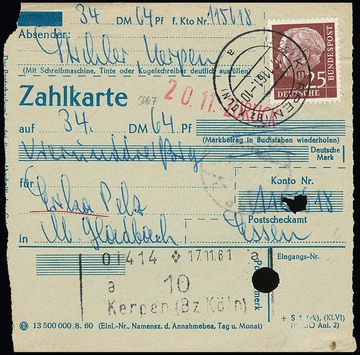 34 DM 64 Pf f. Kto Nr 115618
Absender:
Kerpen
(Mit Schreibmaschine, Tinte oder Kugelschreiber deutlich ausfüllen)
25
DEUTSCHE BUNDESPOST
KERPEN (BZ KÖLN)
a
Zahlkarte
20.11.
auf 34. DM 64 Pf
(Markbetrag in Buchstaben wiederholen)
vierunddreißig
Deutsche Mark
für
Konto Nr.
Erika Pelz
115618
Postscheckamt
in M. Gladbach Essen
01414 17.11.61 a
Eingangs-Nr.
a 10
Kerpen (Bz Köln)
13 500 000 8. 60 (Einl.-Nr., Namensz. d. Annahmebea. Tag u. Monat)